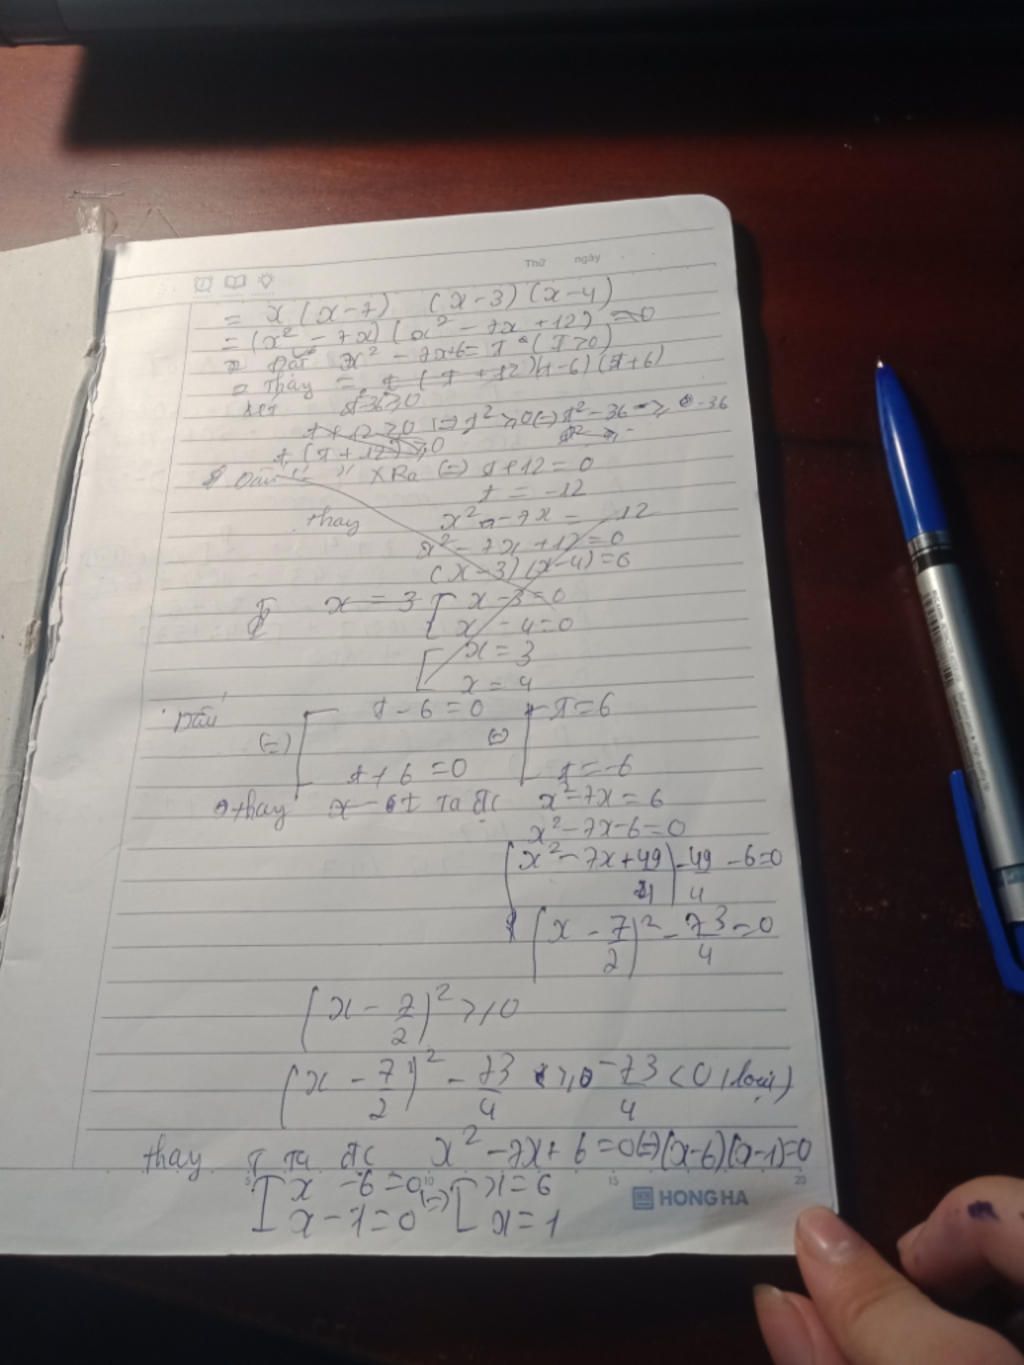 Thứ ngày
= x (x-7) (x-3)(x-4)
= (x² - 7x)(x² - 7x + 12) = 0
Đặt x² - 7x+6 = t (t≥0)
thay = t (t+12)(t-6)(t+6)
xét t²-36≥0
t+12≥0 (=) t²≥0 (=) t²-36 ≥ -36
t(t+12)≥0
Dấu "=" xRa (=) t+12=0
t = -12
thay x² - 7x = -12
x² - 7x + 12 = 0
(x-3)(x-4)=6
x = 3 [ x-3=0
x - 4=0
[ x = 3
x = 4
Dấu t - 6 = 0 t=6
(=) (=)
t + 6 = 0 t = -6
thay x - 6t ta đc x²-7x = 6
x²-7x-6=0
(x²-7x+49/4)-49/4 -6=0
(x - 7/2)² - 73/4 = 0
(x - 7/2)² ≥ 0
(x - 7/2)² - 73/4 ≥ -73/4 < 0 (loại)
thay t ta đc x² - 7x + 6 = 0(=)(x-6)(x-1)=0
[ x - 6 = 0 (=) [ x = 6
x - 1 = 0 x = 1
5 10 15 20
HONG HA